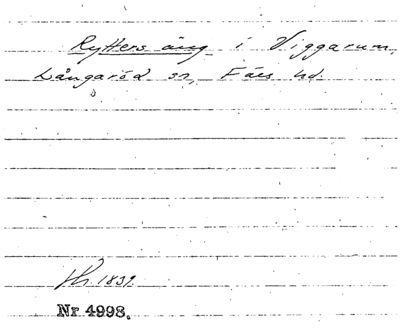 Rytters äng i Viggarum,
Långaröd sn, Färs hd.
1839.
Nr 4998.